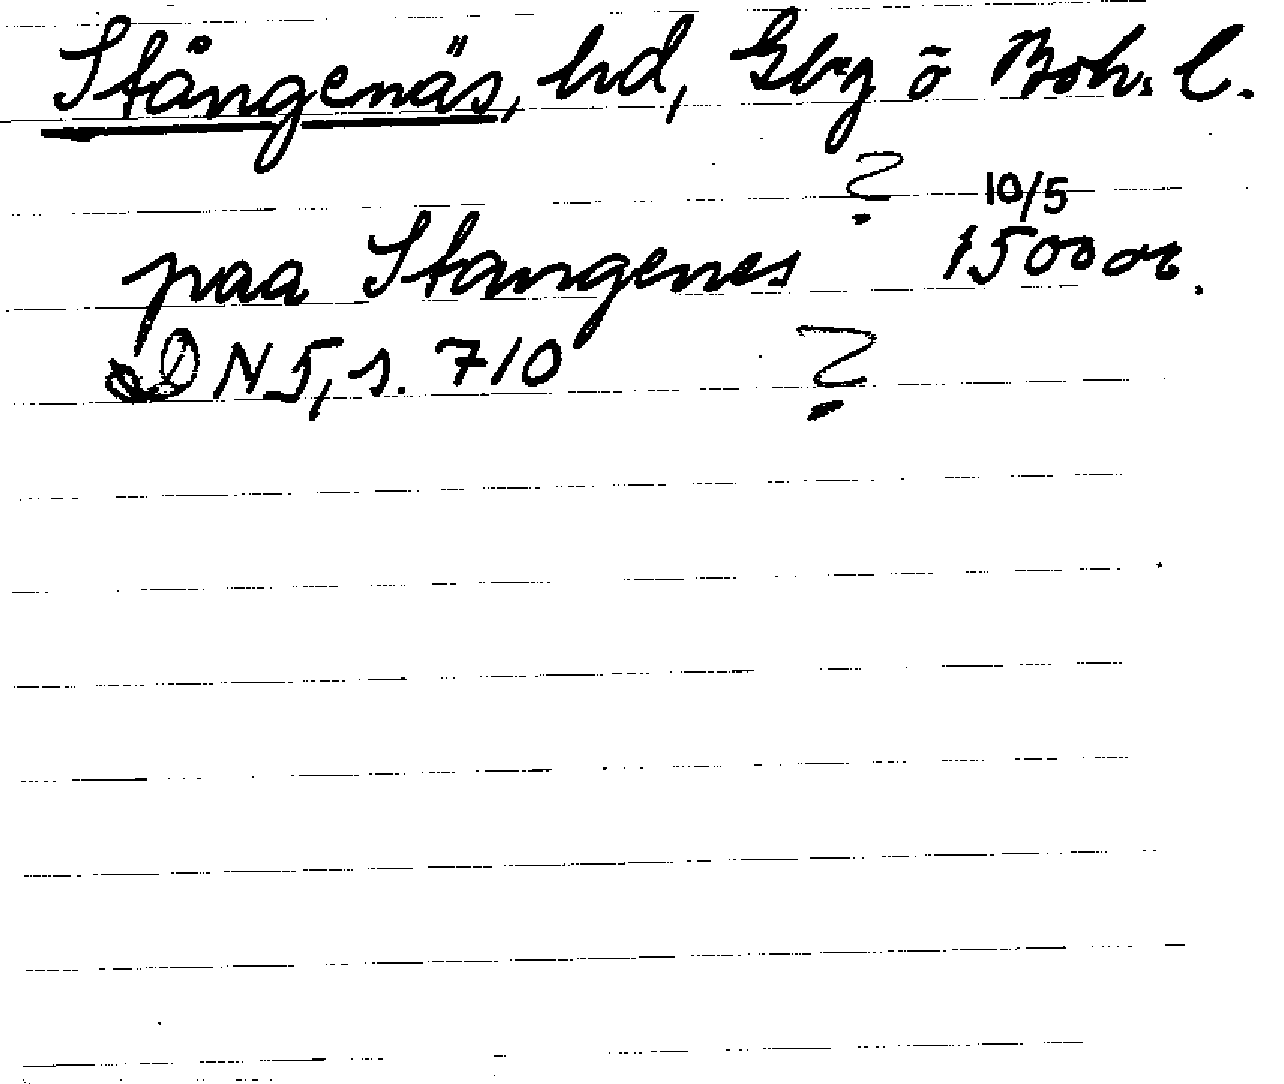 Stångenäs, hd, Gbg o Boh. l.
? 10/5
paa Stangenes 1500 or.
DN 5, s. 710 ?